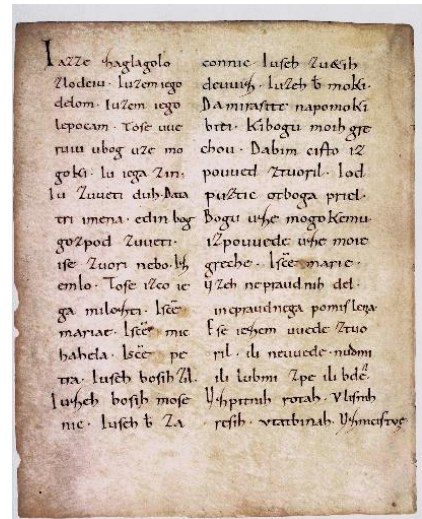 Iazze ſhaglagolo
zlodeiu. Iuzem iego
delom. Iuzem iego
lepocam. Toſe uue
ruiu ubog uze mo
goki. Iu iega zin.
Iu zuueti duh. Data
tri imena. edin bog
gozpod zuueti.
iſe zuori nebo. Iſh
emlo. Toſe izco ie
ga miloſhti. Iſcē
mariae. Iſcē mic
hahela. Iſcē pe
tra. Iuſeh boſih zil.
Iuſheh boſih moſe
nic. Iuſeh b̄ za
connic. Iuſeh zu&ih
deuuiſh. Iuzeh b̄ moki.
Damiraſite napomoki
biti. Kibogu moih gre
chou. Dabim ciſto iz
pouued ztuoril. Iod
puztic otboga priel.
Bogu uſhe mogokemu.
izpouuede uſhe moie
greche. Iſcē marie.
Vzeh nepraudnih del.
inepraudnega pomiſlena.
Eſe ieſhem uuede ztuo
ril. ili neuuede. nudmi
ili lubmi zpe ili bdē.
Vſhpitnih rotah. Vliſnih
reſih. vtatbinah.